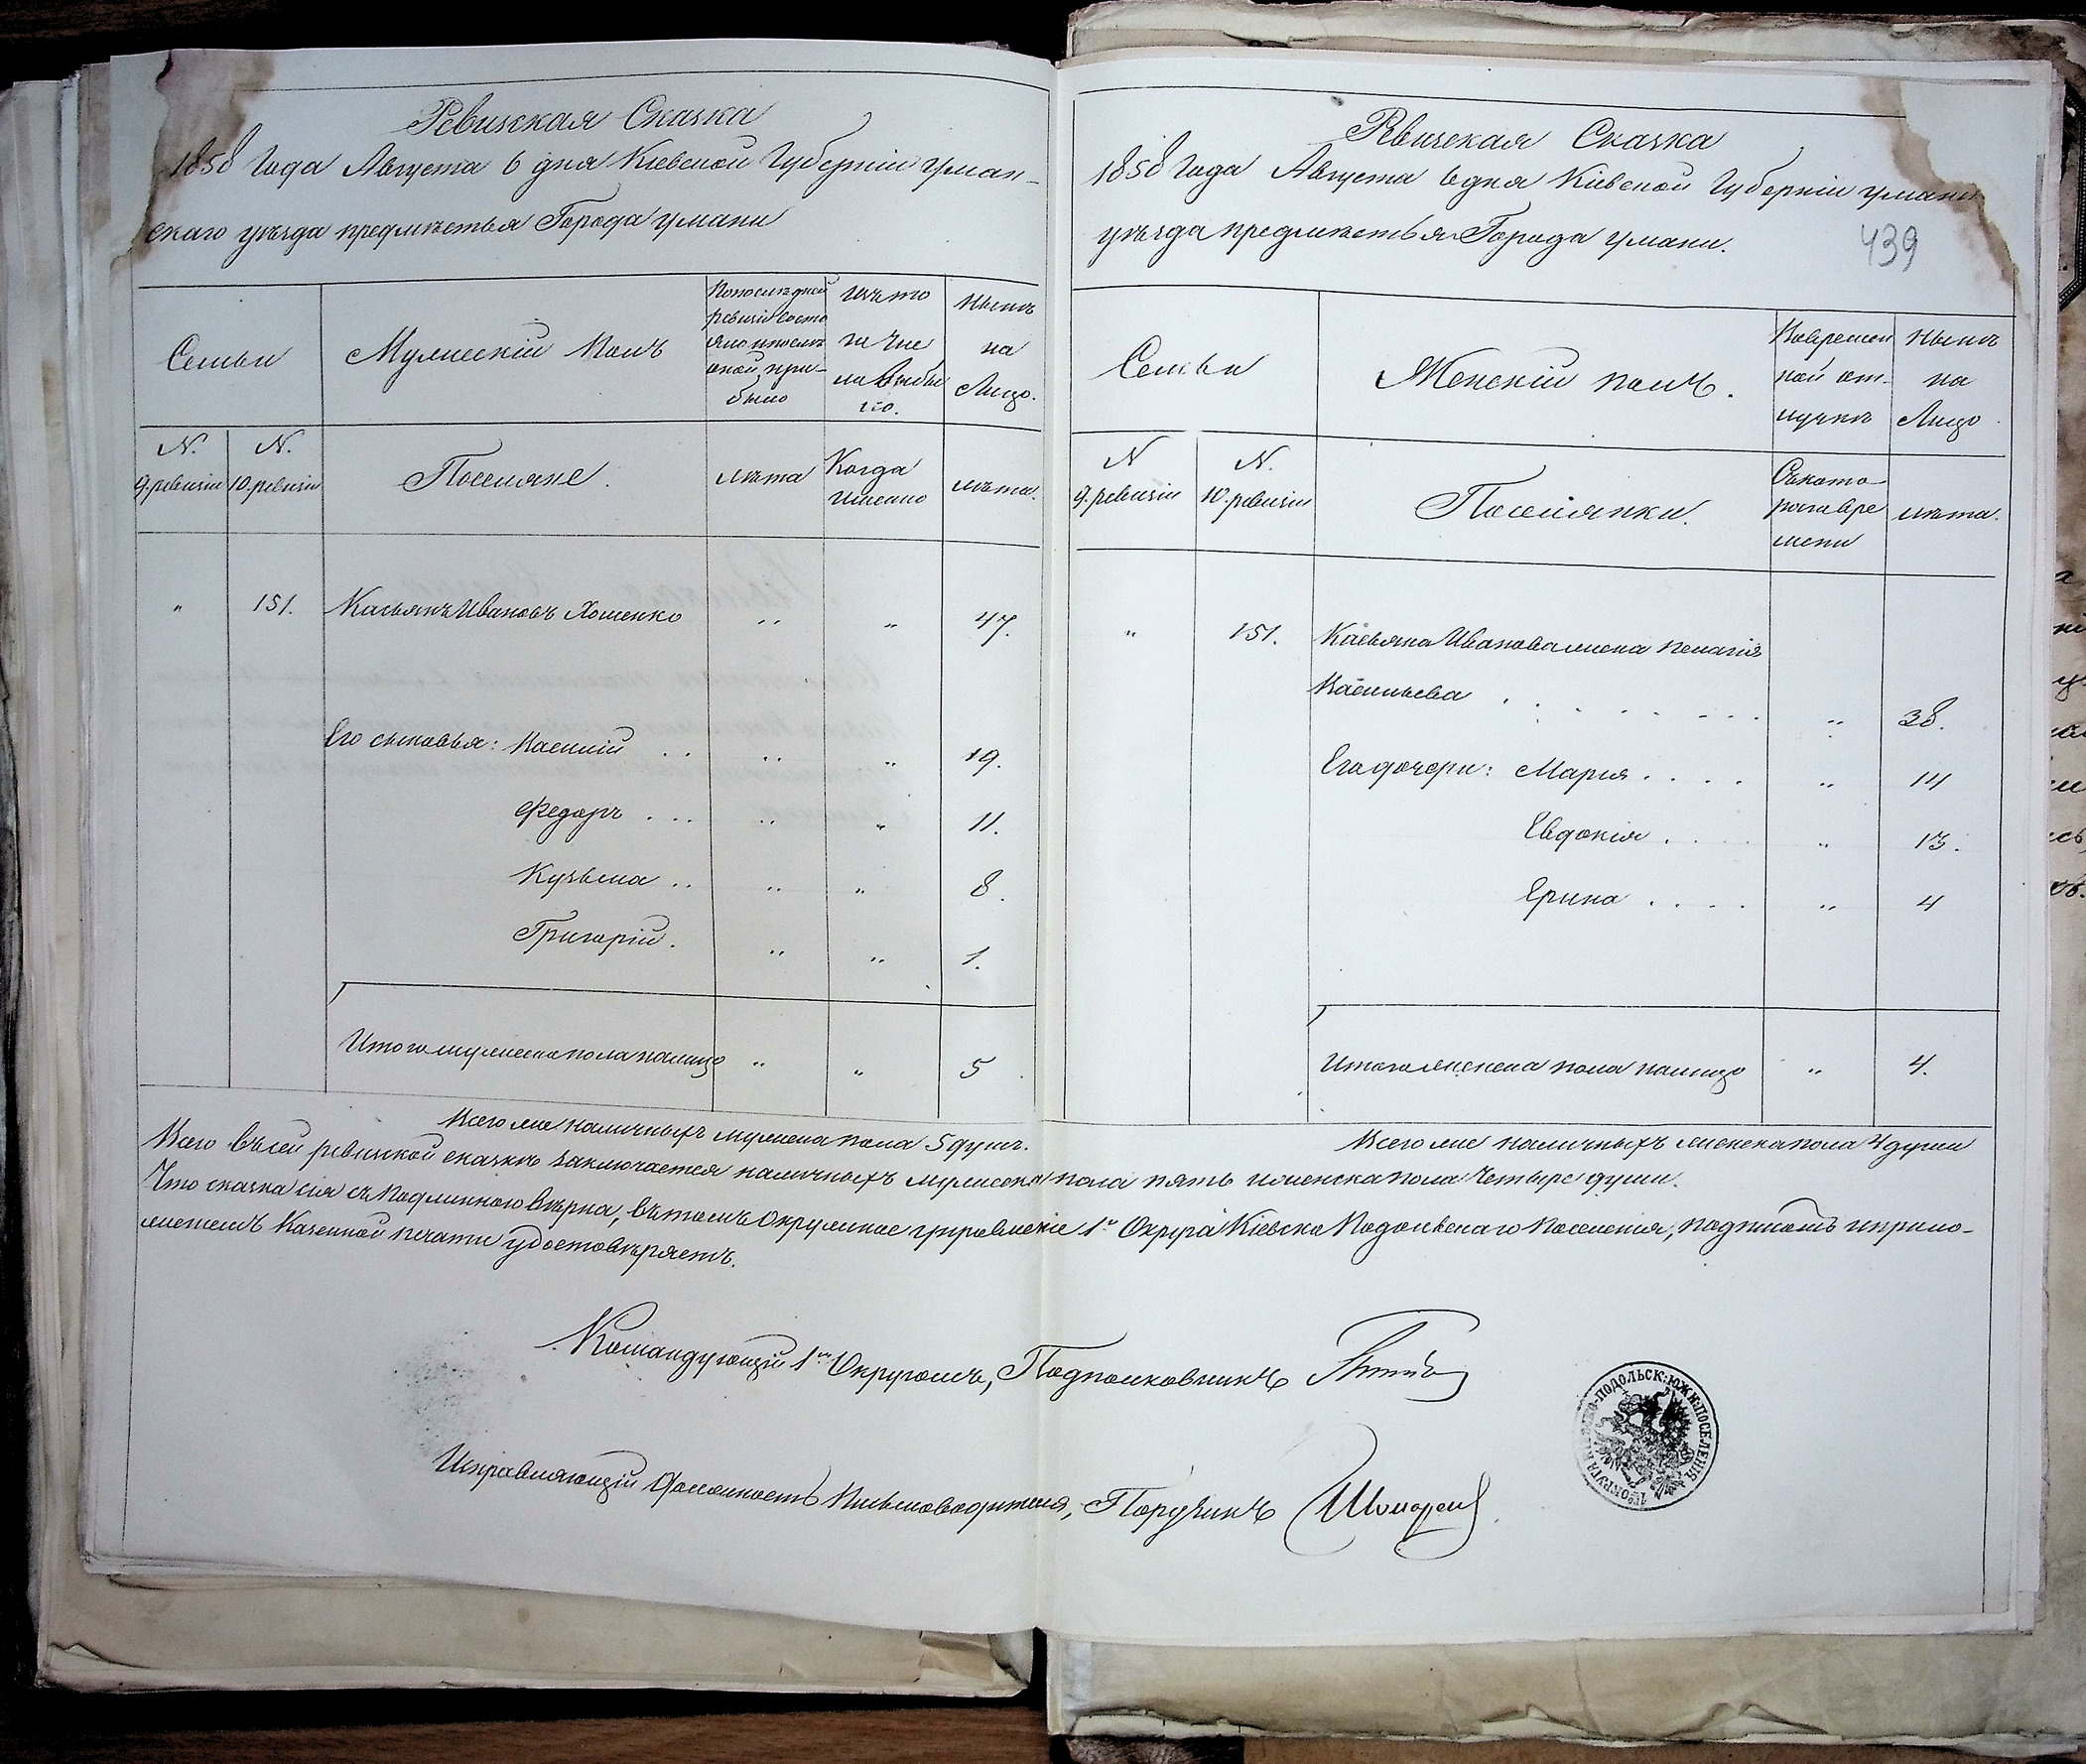 Ревизская Сказка
1858 Года Августа 6 дня Кіевской Губерніи Уман-
скаго уѣзда предмѣстья Города Умани
Семьи
Мужескій Полъ
По послѣдней
ревизіи состо
яло и послѣ
оной при-
было
Изъ то
го чис
ла выбы
ло.
Нынѣ
на
Лицо.
N.
9. ревизіи
N.
10. ревизіи
Поселяне.
лѣта
Когда
именно
лѣта.
" 151. Касьянъ Ивановъ Хоменко " " 47.
Его сыновья: Василій . . " " 19.
Федоръ . . . " " 11.
Кузьма . . " " 8.
Григорій. " " 1.
Итого мужеска пола налицо " " 5
Всего же наличныхъ мужеска пола 5 душъ.
Ревизская Сказка
1858 Года Августа 6 дня Кіевской Губерніи Умани
уѣзда предмѣстья Города Умани.
439
Семьи
Женскій полъ.
Во времен
ной от-
лучкѣ
Нынѣ
на
Лицо
N
9. ревизіи
N.
10. ревизіи
Поселянки.
Съ кото-
рого вре
мени
лѣта.
" 151. Касьяна Иванова жена Пелагія
Васильева . . . . . . . . " 38.
Его дочери: Марія . . . . " 14
Евдокія . . . . " 13.
Ерина . . . . " 4
Итого женска пола налицо " 4.
Всего же наличныхъ женска пола 4 души
Всего въ сей ревизской сказкѣ заключается наличныхъ мужеска пола пять и женска пола Четыре души.
Что сказка сія съ подлинною вѣрна, въ томъ Окружное управленіе 1го Округа Кіевско Подольскаго Поселенія, подписомъ и прило-
жетемъ Казенной печати удостовѣряетъ.
Командующій 1мъ Округомъ, Подполковникъ
Исправляющій Должность Письмоводителя, Поручикъ
1ГО ОКРУГА КІЕВСКО-ПОДОЛЬСК: ЮЖН: ПОСЕЛЕНІЯ